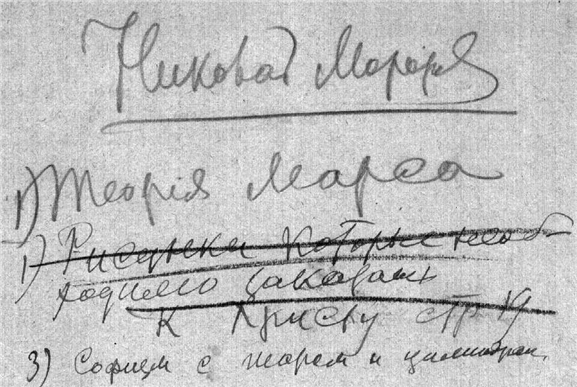 1) Теорія Марса
1) Рисунки которые необ-
ходимо заказать
к Ариску стр 19
3) Софизм с шаром и цилиндром.